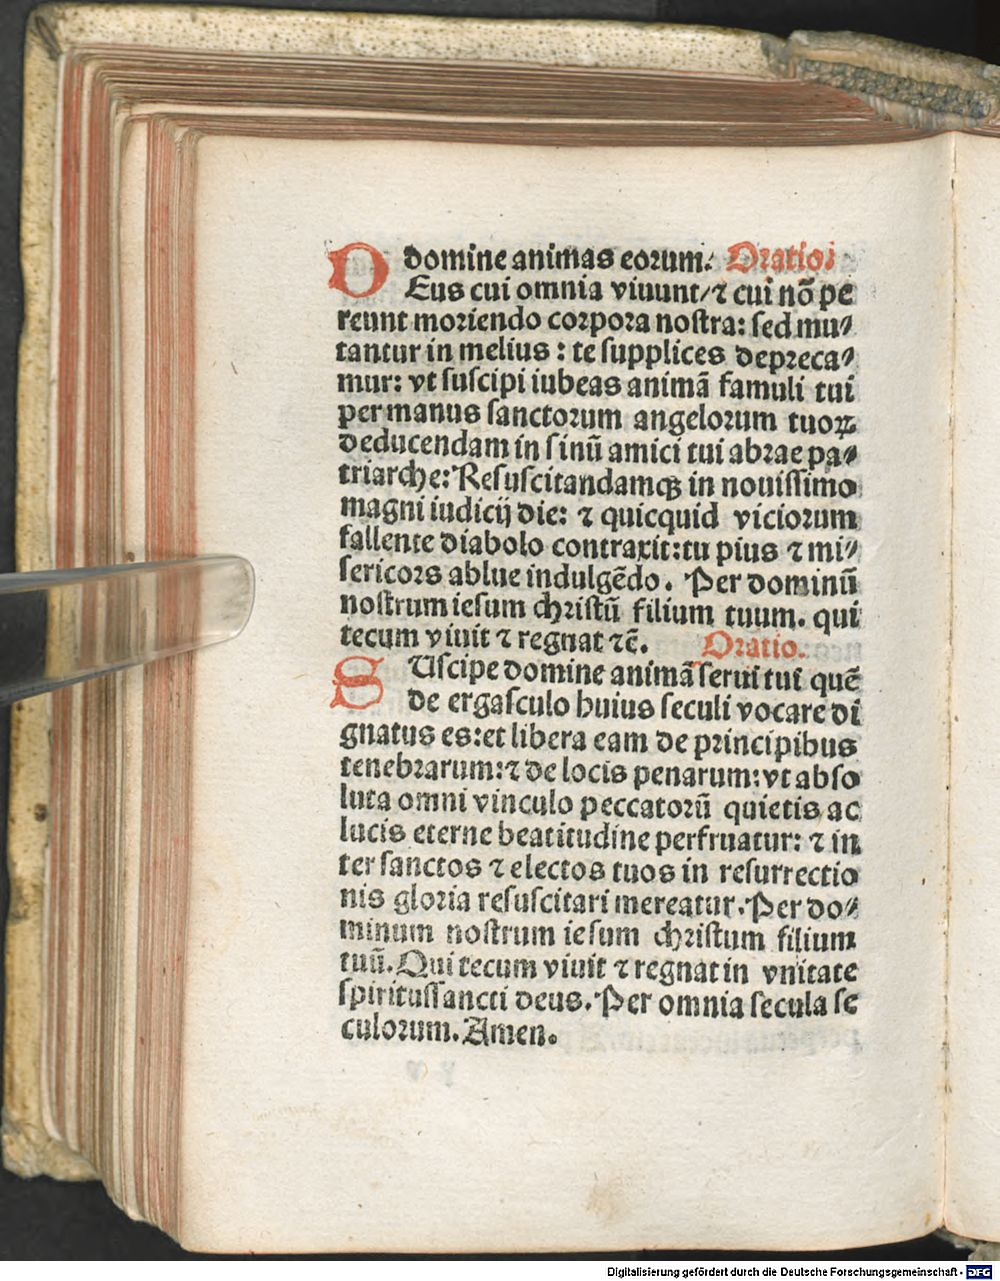 domine animas eorum. Oratio.
DEus cui omnia viuunt/⁊ cui nō pe
reunt moriendo corpora nostra: sed mu⸗
tantur in melius: te supplices depreca⸗
mur: vt suscipi iubeas animā famuli tui
per manus sanctorum angelorum tuoꝝ
deducendam in sinū amici tui abrae pa⸗
triarche: Resuscitandamqꝫ in nouissimo
magni iudicij die: ⁊ quicquid viciorum
fallente diabolo contraxit: tu pius ⁊ mi⸗
sericors ablue indulgēdo. Per dominū
nostrum iesum christū filium tuum. qui
tecum viuit ⁊ regnat ⁊c̄. Oratio.
SUscipe domine animā serui tui quē
de ergasculo huius seculi vocare di
gnatus es: et libera eam de principibus
tenebrarum: ⁊ de locis penarum: vt abso
luta omni vinculo peccatorū quietis ac
lucis eterne beatitudine perfruatur: ⁊ in
ter sanctos ⁊ electos tuos in resurrectio
nis gloria resuscitari mereatur. Per do⸗
minum nostrum iesum christum filium
tuū. Qui tecum viuit ⁊ regnat in vnitate
spiritussancti deus. Per omnia secula se
culorum. Amen.
Digitalisierung gefördert durch die Deutsche Forschungsgemeinschaft - DFG